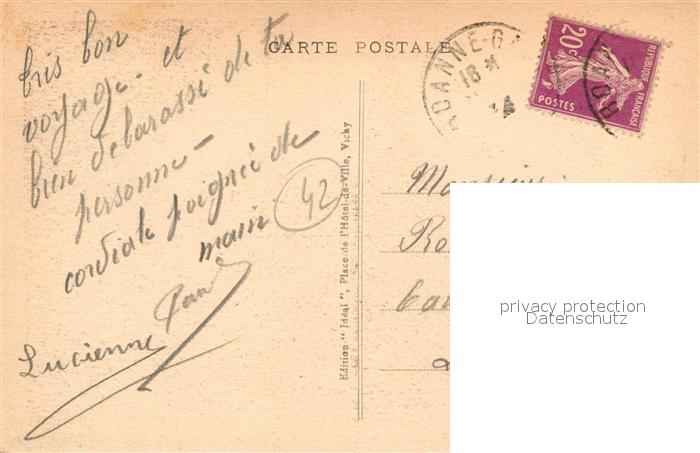 CARTE POSTALE
très bon
voyage - et
bien débarassé de ta
personne -
cordiale poignée de
main
Lucienne
42
Edition " Idéal ", Place de l'Hôtel-de-Ville, Vichy
ROANNE-GA
18
20c
POSTES
REPUBLIQUE FRANÇAISE
ROAN
Monsieur
privacy protection
Datenschutz